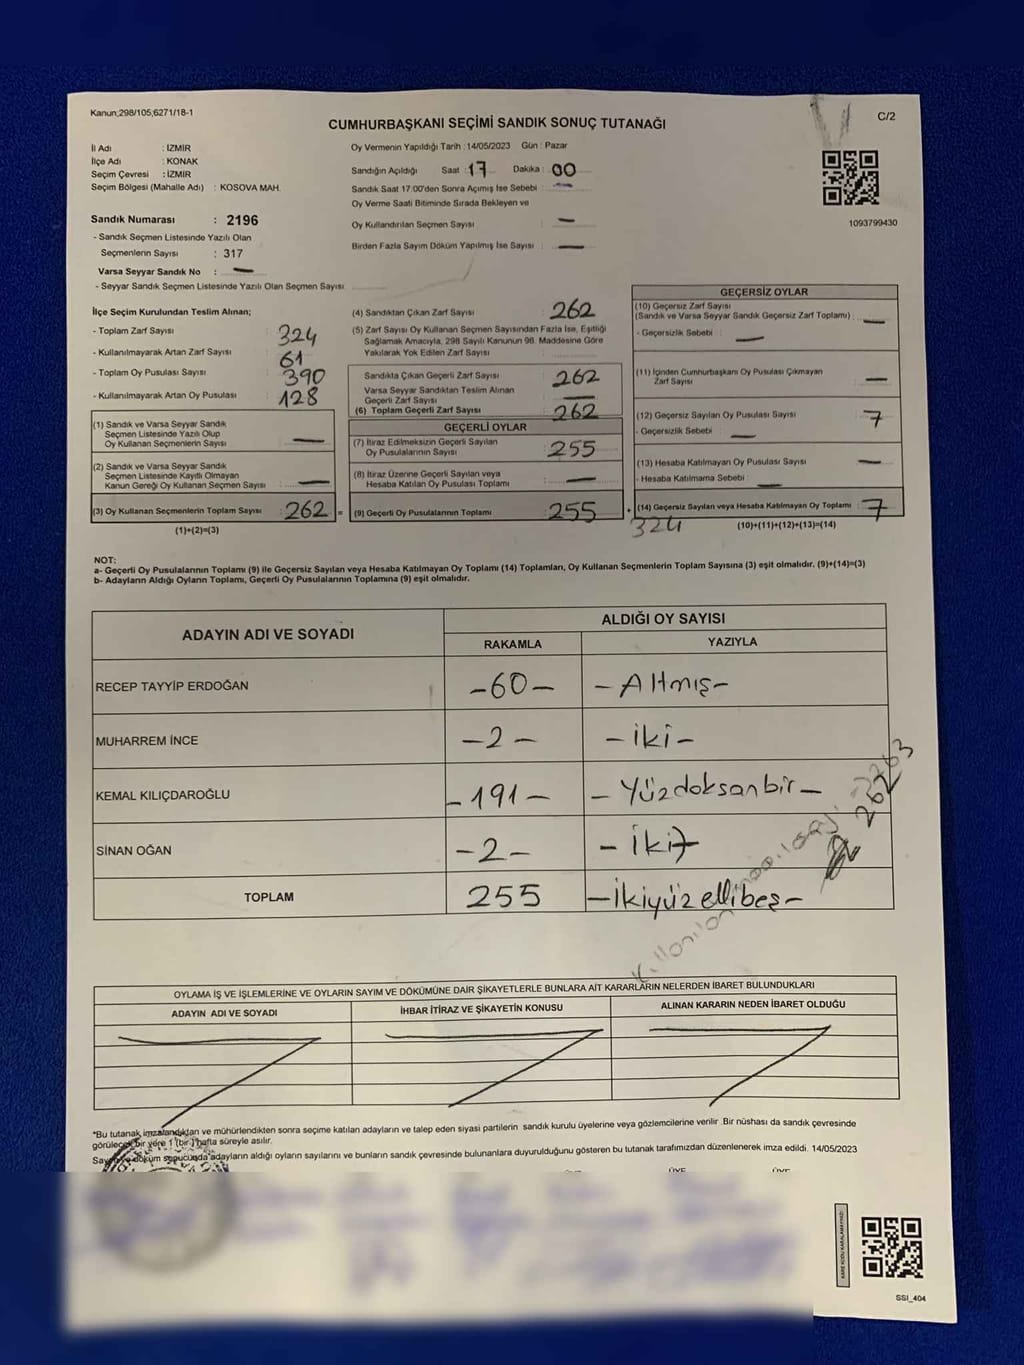 Kanun;298/105;6271/18-1
C/2
CUMHURBAŞKANI SEÇİMİ SANDIK SONUÇ TUTANAĞI
İl Adı : İZMİR
İlçe Adı : KONAK
Seçim Çevresi : İZMİR
Seçim Bölgesi (Mahalle Adı) : KOSOVA MAH.
Sandık Numarası : 2196
- Sandık Seçmen Listesinde Yazılı Olan
Seçmenlerin Sayısı : 317
Varsa Seyyar Sandık No : —
- Seyyar Sandık Seçmen Listesinde Yazılı Olan Seçmen Sayısı
Oy Vermenin Yapıldığı Tarih : 14/05/2023 Gün : Pazar
Sandığın Açıldığı Saat : 17 Dakika : 00
Sandık Saat 17:00'den Sonra Açımış İse Sebebi : —
Oy Verme Saati Bitiminde Sırada Bekleyen ve
Oy Kullandırılan Seçmen Sayısı : —
Birden Fazla Sayım Döküm Yapılmış İse Sayısı : —
1093799430
İlçe Seçim Kurulundan Teslim Alınan;
- Toplam Zarf Sayısı 324
- Kullanılmayarak Artan Zarf Sayısı 61
- Toplam Oy Pusulası Sayısı 390
- Kullanılmayarak Artan Oy Pusulası 128
(1) Sandık ve Varsa Seyyar Sandık
Seçmen Listesinde Yazılı Olup
Oy Kullanan Seçmenlerin Sayısı —
(2) Sandık ve Varsa Seyyar Sandık
Seçmen Listesinde Kayıtlı Olmayan
Kanun Gereği Oy Kullanan Seçmen Sayısı —
(3) Oy Kullanan Seçmenlerin Toplam Sayısı 262 =
(1)+(2)=(3)
(4) Sandıktan Çıkan Zarf Sayısı 262
(5) Zarf Sayısı Oy Kullanan Seçmen Sayısından Fazla İse, Eşitliği
Sağlamak Amacıyla, 298 Sayılı Kanunun 98. Maddesine Göre
Yakılarak Yok Edilen Zarf Sayısı
Sandıkta Çıkan Geçerli Zarf Sayısı 262
Varsa Seyyar Sandıktan Teslim Alınan
Geçerli Zarf Sayısı —
(6) Toplam Geçerli Zarf Sayısı 262
GEÇERLİ OYLAR
(7) İtiraz Edilmeksizin Geçerli Sayılan
Oy Pusulalarının Sayısı 255
(8) İtiraz Üzerine Geçerli Sayılan veya
Hesaba Katılan Oy Pusulası Toplamı —
(9) Geçerli Oy Pusulalarının Toplamı 255 +
GEÇERSİZ OYLAR
(10) Geçersiz Zarf Sayısı
(Sandık ve Varsa Seyyar Sandık Geçersiz Zarf Toplamı) : —
- Geçersizlik Sebebi : —
(11) İçinden Cumhurbaşkanı Oy Pusulası Çıkmayan
Zarf Sayısı —
(12) Geçersiz Sayılan Oy Pusulası Sayısı : 7
- Geçersizlik Sebebi : —
(13) Hesaba Katılmayan Oy Pusulası Sayısı —
- Hesaba Katılmama Sebebi : —
(14) Geçersiz Sayılan veya Hesaba Katılmayan Oy Toplamı 7
324 (10)+(11)+(12)+(13)=(14)
NOT:
a- Geçerli Oy Pusulalarının Toplamı (9) ile Geçersiz Sayılan veya Hesaba Katılmayan Oy Toplamı (14) Toplamları, Oy Kullanan Seçmenlerin Toplam Sayısına (3) eşit olmalıdır. (9)+(14)=(3)
b- Adayların Aldığı Oyların Toplamı, Geçerli Oy Pusulalarının Toplamına (9) eşit olmalıdır.
ADAYIN ADI VE SOYADI
ALDIĞI OY SAYISI
RAKAMLA YAZIYLA
RECEP TAYYİP ERDOĞAN -60- -Altmış-
MUHARREM İNCE -2- -iki-
KEMAL KILIÇDAROĞLU -191- -Yüzdoksanbir-
SİNAN OĞAN -2- -iki-
TOPLAM 255 -İkiyüzellibeş-
262 263
OYLAMA İŞ VE İŞLEMLERİNE VE OYLARIN SAYIM VE DÖKÜMÜNE DAİR ŞİKAYETLERLE BUNLARA AİT KARARLARIN NELERDEN İBARET BULUNDUKLARI
ADAYIN ADI VE SOYADI İHBAR İTİRAZ VE ŞİKAYETİN KONUSU ALINAN KARARIN NEDEN İBARET OLDUĞU
*Bu tutanak imzalandıktan ve mühürlendikten sonra seçime katılan adayların ve talep eden siyasi partilerin sandık kurulu üyelerine veya gözlemcilerine verilir. Bir nüshası da sandık çevresinde
görülecek bir yere 1 (bir) hafta süreyle asılır.
Sayım ve döküm sonucunda adayların aldığı oyların sayılarını ve bunların sandık çevresinde bulunanlara duyurulduğunu gösteren bu tutanak tarafımızdan düzenlenerek imza edildi. 14/05/2023
ÜYE ÜYE
SSI_404